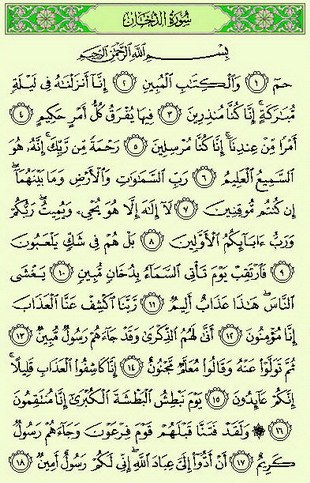 سُورَةُ الدُّخَانِ
بِسْمِ اللَّهِ الرَّحْمَٰنِ الرَّحِيمِ
حمٓ ١ وَٱلْكِتَٰبِ ٱلْمُبِينِ ٢ إِنَّآ أَنزَلْنَٰهُ فِى لَيْلَةٍ
مُّبَٰرَكَةٍ ۚ إِنَّا كُنَّا مُنذِرِينَ ٣ فِيهَا يُفْرَقُ كُلُّ أَمْرٍ حَكِيمٍ ٤
أَمْرًا مِّنْ عِندِنَآ ۚ إِنَّا كُنَّا مُرْسِلِينَ ٥ رَحْمَةً مِّن رَّبِّكَ ۚ إِنَّهُۥ هُوَ
ٱلسَّمِيعُ ٱلْعَلِيمُ ٦ رَبِّ ٱلسَّمَٰوَٰتِ وَٱلْأَرْضِ وَمَا بَيْنَهُمَآ ۖ
إِن كُنتُم مُّوقِنِينَ ٧ لَآ إِلَٰهَ إِلَّا هُوَ يُحْىِۦ وَيُمِيتُ ۖ رَبُّكُمْ
وَرَبُّ ءَابَآئِكُمُ ٱلْأَوَّلِينَ ٨ بَلْ هُمْ فِى شَكٍّ يَلْعَبُونَ
٩ فَٱرْتَقِبْ يَوْمَ تَأْتِى ٱلسَّمَآءُ بِدُخَانٍ مُّبِينٍ ١٠ يَغْشَى
ٱلنَّاسَ ۖ هَٰذَا عَذَابٌ أَلِيمٌ ١١ رَّبَّنَا ٱكْشِفْ عَنَّا ٱلْعَذَابَ
إِنَّا مُؤْمِنُونَ ١٢ أَنَّىٰ لَهُمُ ٱلذِّكْرَىٰ وَقَدْ جَآءَهُمْ رَسُولٌ مُّبِينٌ ١٣
ثُمَّ تَوَلَّوْا۟ عَنْهُ وَقَالُوا۟ مُعَلَّمٌ مَّجْنُونٌ ١٤ إِنَّا كَاشِفُوا۟ ٱلْعَذَابِ قَلِيلًا ۚ
إِنَّكُمْ عَآئِدُونَ ١٥ يَوْمَ نَبْطِشُ ٱلْبَطْشَةَ ٱلْكُبْرَىٰٓ إِنَّا مُنتَقِمُونَ
١٦ ۞ وَلَقَدْ فَتَنَّا قَبْلَهُمْ قَوْمَ فِرْعَوْنَ وَجَآءَهُمْ رَسُولٌ
كَرِيمٌ ١٧ أَنْ أَدُّوٓا۟ إِلَىَّ عِبَادَ ٱللَّهِ ۖ إِنِّى لَكُمْ رَسُولٌ أَمِينٌ ١٨